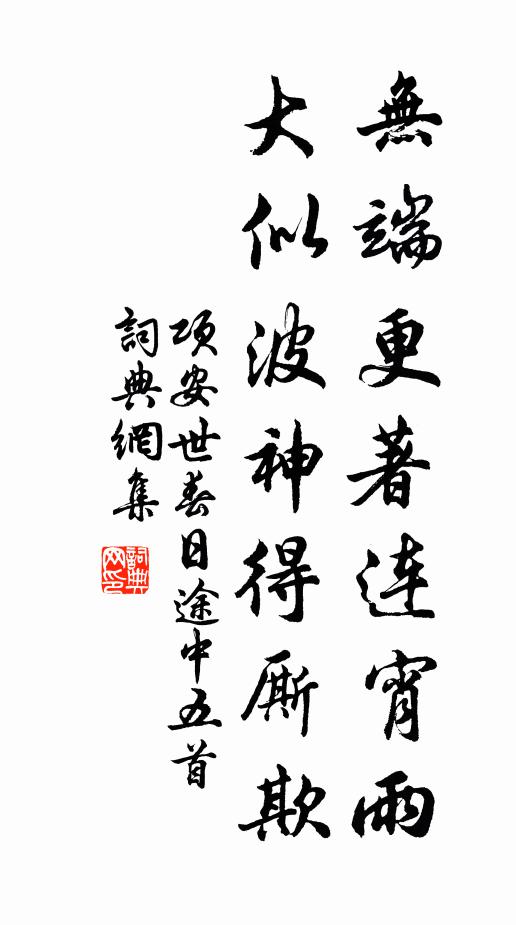 無端更著連宵雨
大似波神得厮欺
項安世春日途中五首
詞典網集
詞典網印